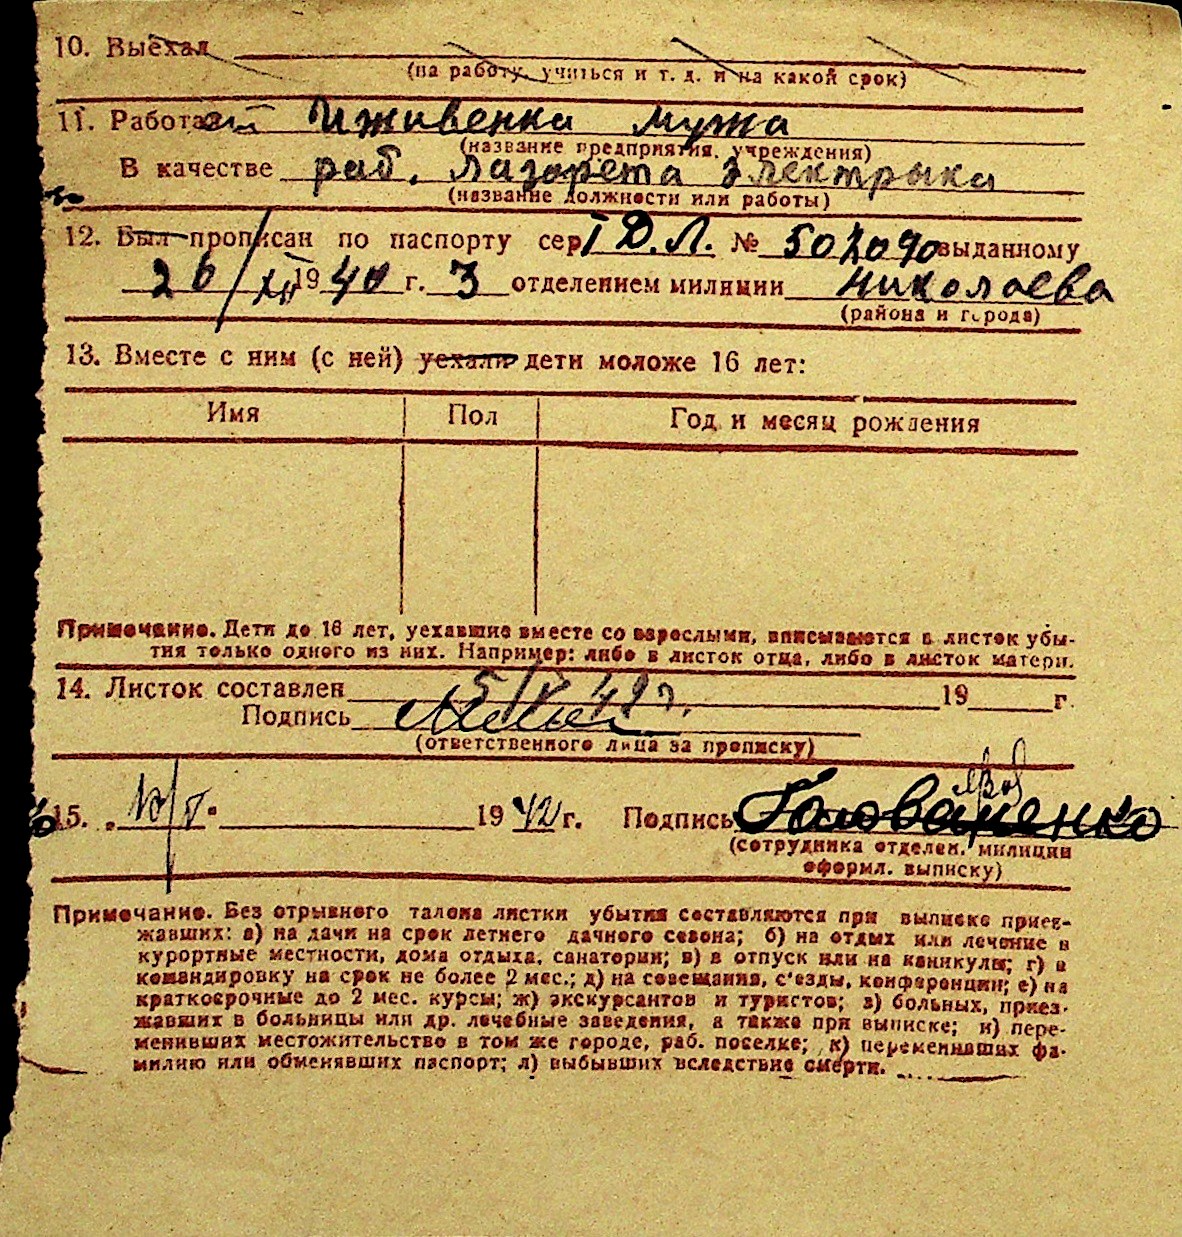 10. Выехал
(на работу, учиться и т. д. и на какой срок)
11. Работает Иживенка мужа
(название предприятия, учреждения)
В качестве раб. лазарета Электрыка
(название должности или работы)
12. Был прописан по паспорту сер. I Д.Л. № 502090 выданному
26/XII 1940 г. 3 отделением милиции Николаева
(района и города)
13. Вместе с ним (с ней) уехали дети моложе 16 лет:
Имя Пол Год и месяц рождения
Примечание. Дети до 16 лет, уехавшие вместе со взрослыми, вписываются в листок убы-
тия только одного из них. Например: либо в листок отца, либо в листок матери.
14. Листок составлен 5/V 42 г. 19 г.
Подпись
(ответственного лица за прописку)
15. „ 19 42 г. Подпись Головаченко
(сотрудника отделен. милиции
оформл. выписку)
Примечание. Без отрывного талона листки убытия составляются при выписке приез-
жавших: а) на дачи на срок летнего дачного сезона; б) на отдых или лечение в
курортные местности, дома отдыха, санатории; в) в отпуск или на каникулы; г) в
командировку на срок не более 2 мес.; д) на совещания, с'езды, конференции; е) на
краткосрочные до 2 мес. курсы; ж) экскурсантов и туристов; з) больных, приез-
жавших в больницы или др. лечебные заведения, а также при выписке; и) пере-
менивших местожительство в том же городе, раб. поселке; к) переменивших фа-
милию или обменявших паспорт; л) выбывших вследствие смерти.